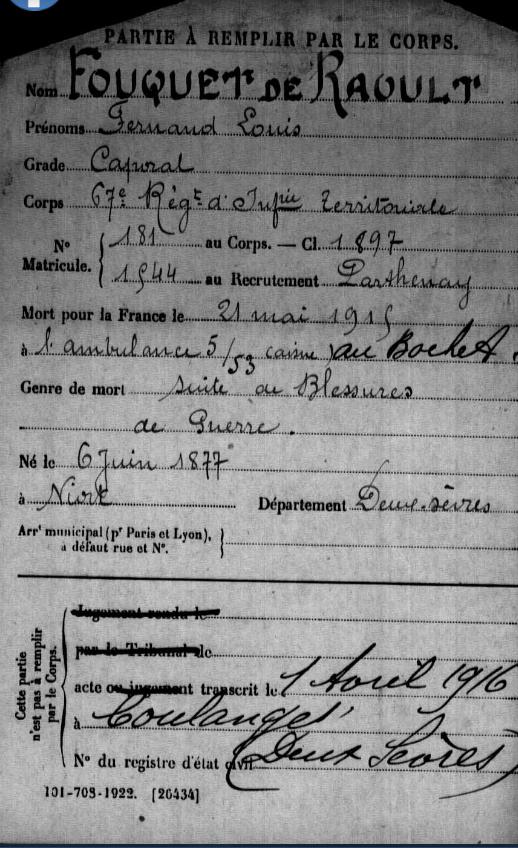 PARTIE À REMPLIR PAR LE CORPS.
Nom FOUQUET DE RAOULT
Prénoms Fernand Louis
Grade Caporal
Corps 67e Régt d'Infie Territoriale
No Matricule. 181 au Corps. — Cl. 1897
1544 au Recrutement Parthenay
Mort pour la France le 21 mai 1915
à l'ambulance 5/53 au Bochet.
Genre de mort suite de Blessures
de Guerre.
Né le 6 Juin 1877
à Niort Département Deux-sèvres
Arrt municipal (pr Paris et Lyon),
à défaut rue et No.
Cette partie n'est pas à remplir par le Corps.
Jugement rendu le
par le Tribunal de
acte ou jugement transcrit le 1 Avril 1916
à Coulonges
No du registre d'état civil (Deux Sèvres)
101-708-1922. [26434]